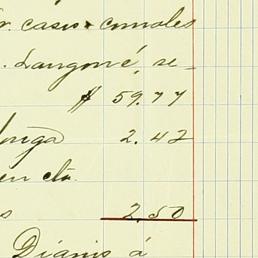 r. casos conoles
. Langoné, se_
$ 59.77
onga 2.42
en cta.
s 2.50
Dianis á